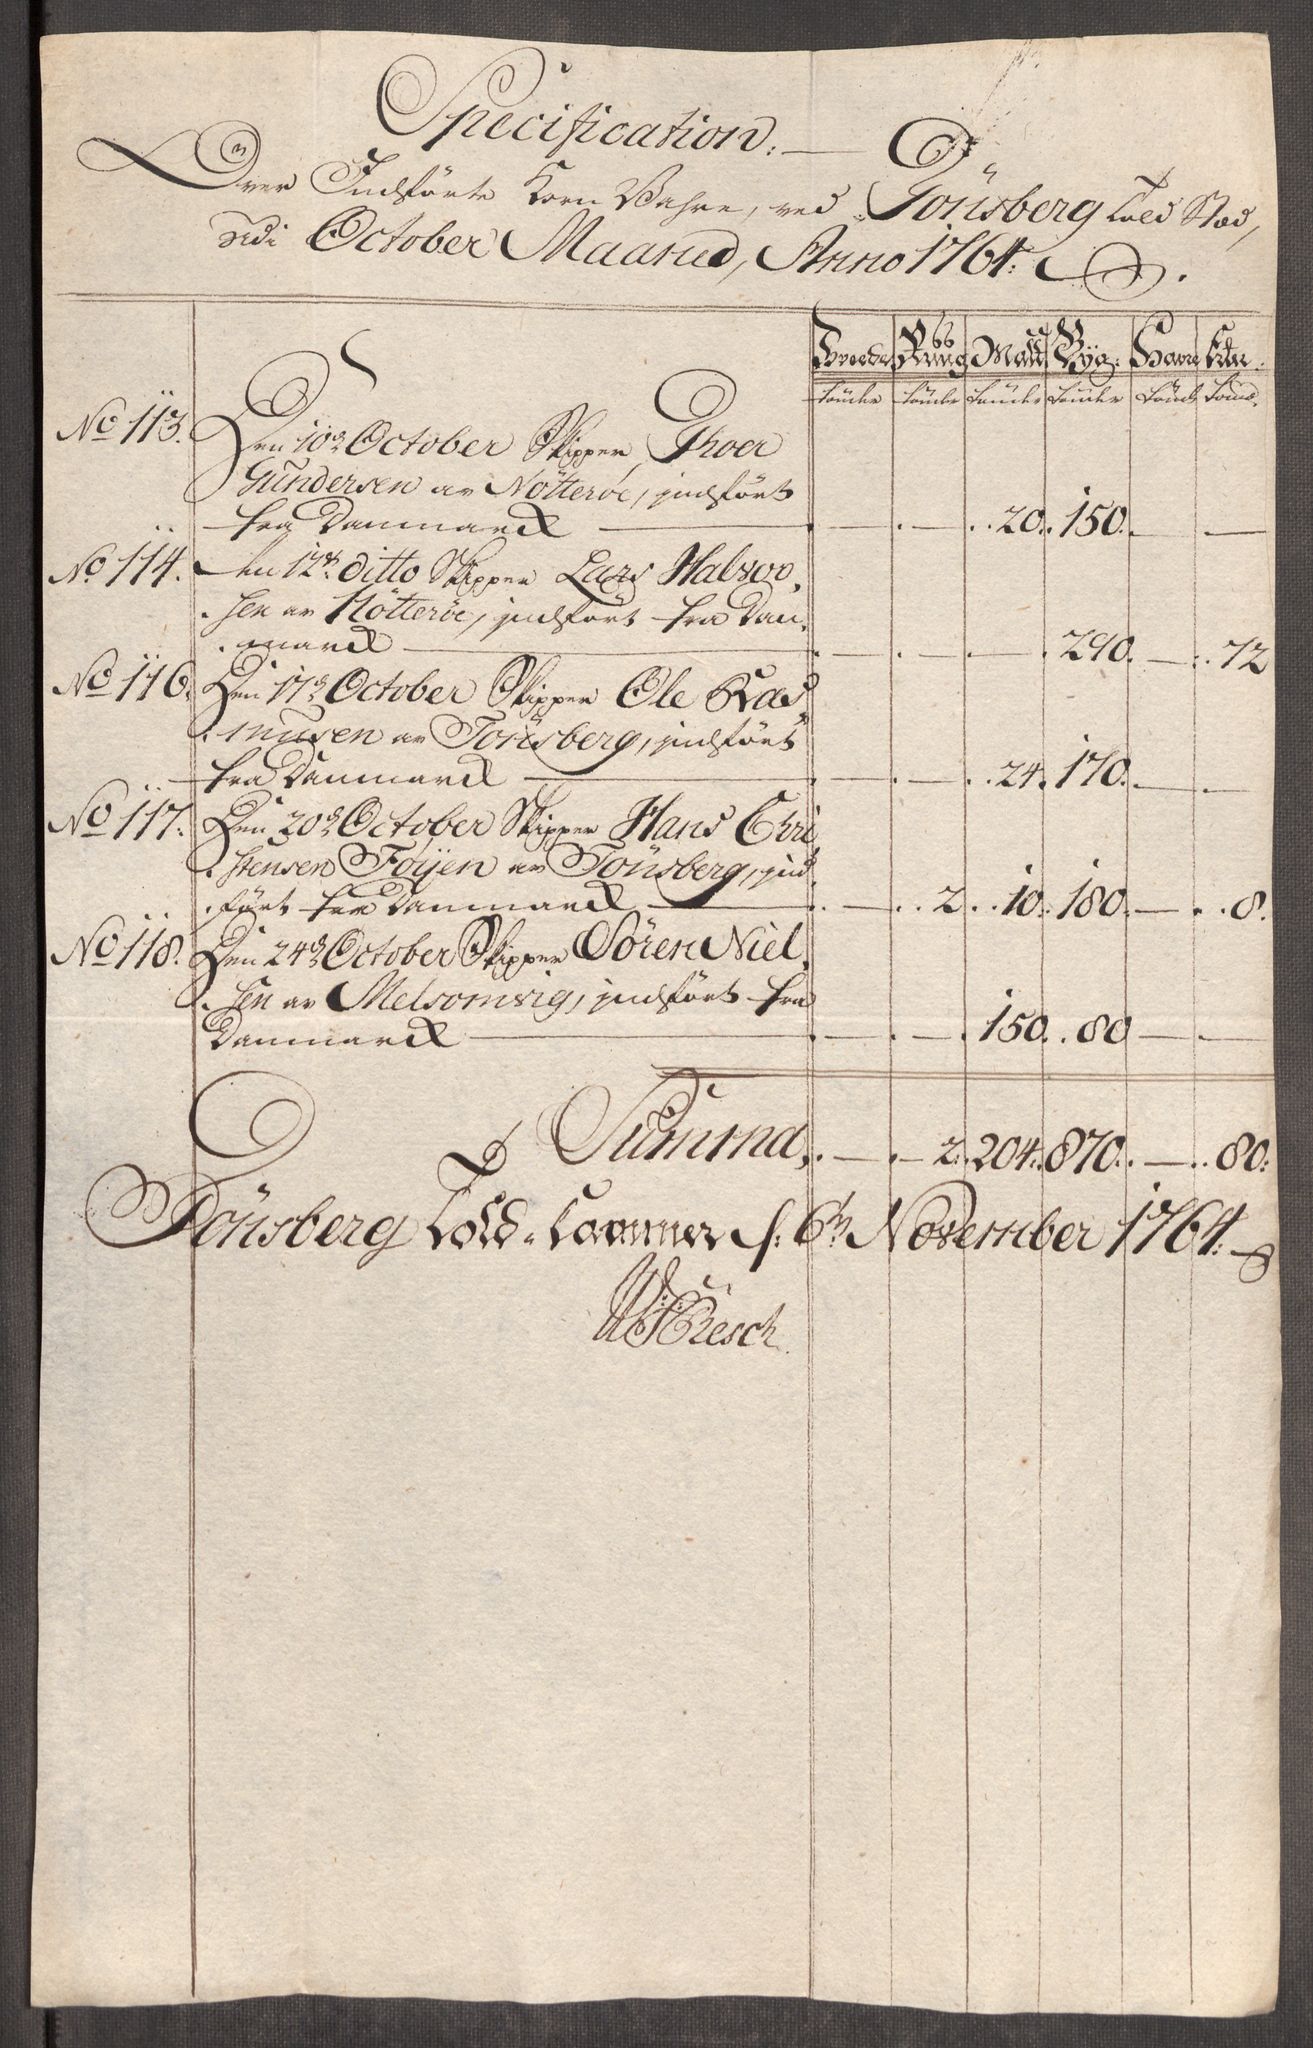 Specification.
Over Indførte Korn Vahre, ved Tönsberg Told Stæd,
udi October Maaned, Anno 1764.
Hvede Rug Malt Byg. Havre Erter.
Tönder Tönder Tönder Tönder Tönder Tönd.
No 113. Den 10de October Skipper Thoer
Gundersen av Nötteröe, indfört
fra Danmarck 20. 150.
No 114. den 12te ditto Skipper Lars Halvor,
sen av Nötteröe, indfört fra Dan,
marck 290. 72
No 116. Den 17de October Skipper Ole Ras,
musen av Tönsberg, indfört
fra Danmarck 24. 170.
No 117. Den 20de October Skipper Hans Chri
stensen Föyen av Tönsberg, ind,
fört fra Danmarck 2. 10. 180. 8.
No 118. Den 24de October Skipper Sören Niel,
sen av Melsomvig, indfört fra
Danmarck 150. 80
Summa, 2. 204. 870. 80.
Tönsberg Told-Cammer d: 6te November 1764.
Resch